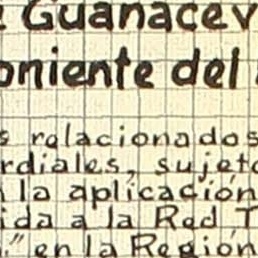 Guanacev
oniente del
s relacionados
rdiales, sujeto
la aplicación
ida a la Red T
" en la Región